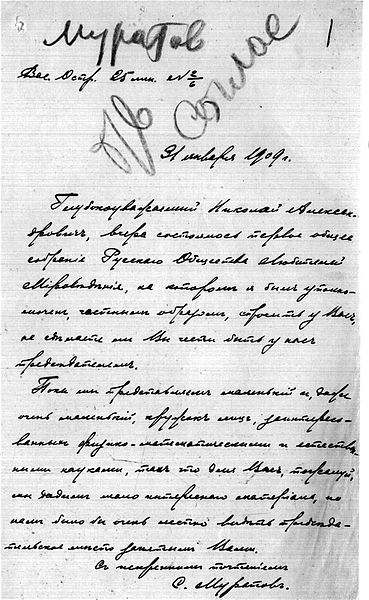 Муратов
Не соглас
Вас. Остр. 25 лин. № 2/6
31 января 1909 г.
Глубокоуважаемый Николай Алексан-
дровичъ, вчера состоялось первое общее
собраніе Русскаго Общества Любителей
Міровѣдѣнія, на которомъ я былъ уполно-
моченъ частнымъ образомъ, спросить у Васъ,
не сдѣлаете ли Вы чести быть у насъ
предсѣдателемъ.
Пока мы представляемъ маленькій и, даже
очень маленькій, кружокъ лицъ, заинтересо-
ванныхъ физико-математическими и естествен-
ными науками, такъ что для Васъ, пожалуй,
мы дадимъ мало интереснаго матеріала, но
намъ было бы очень лестно видѣть предсѣда-
тельское мѣсто занятымъ Вами.
Съ искреннимъ почтеніемъ
С. Муратовъ.